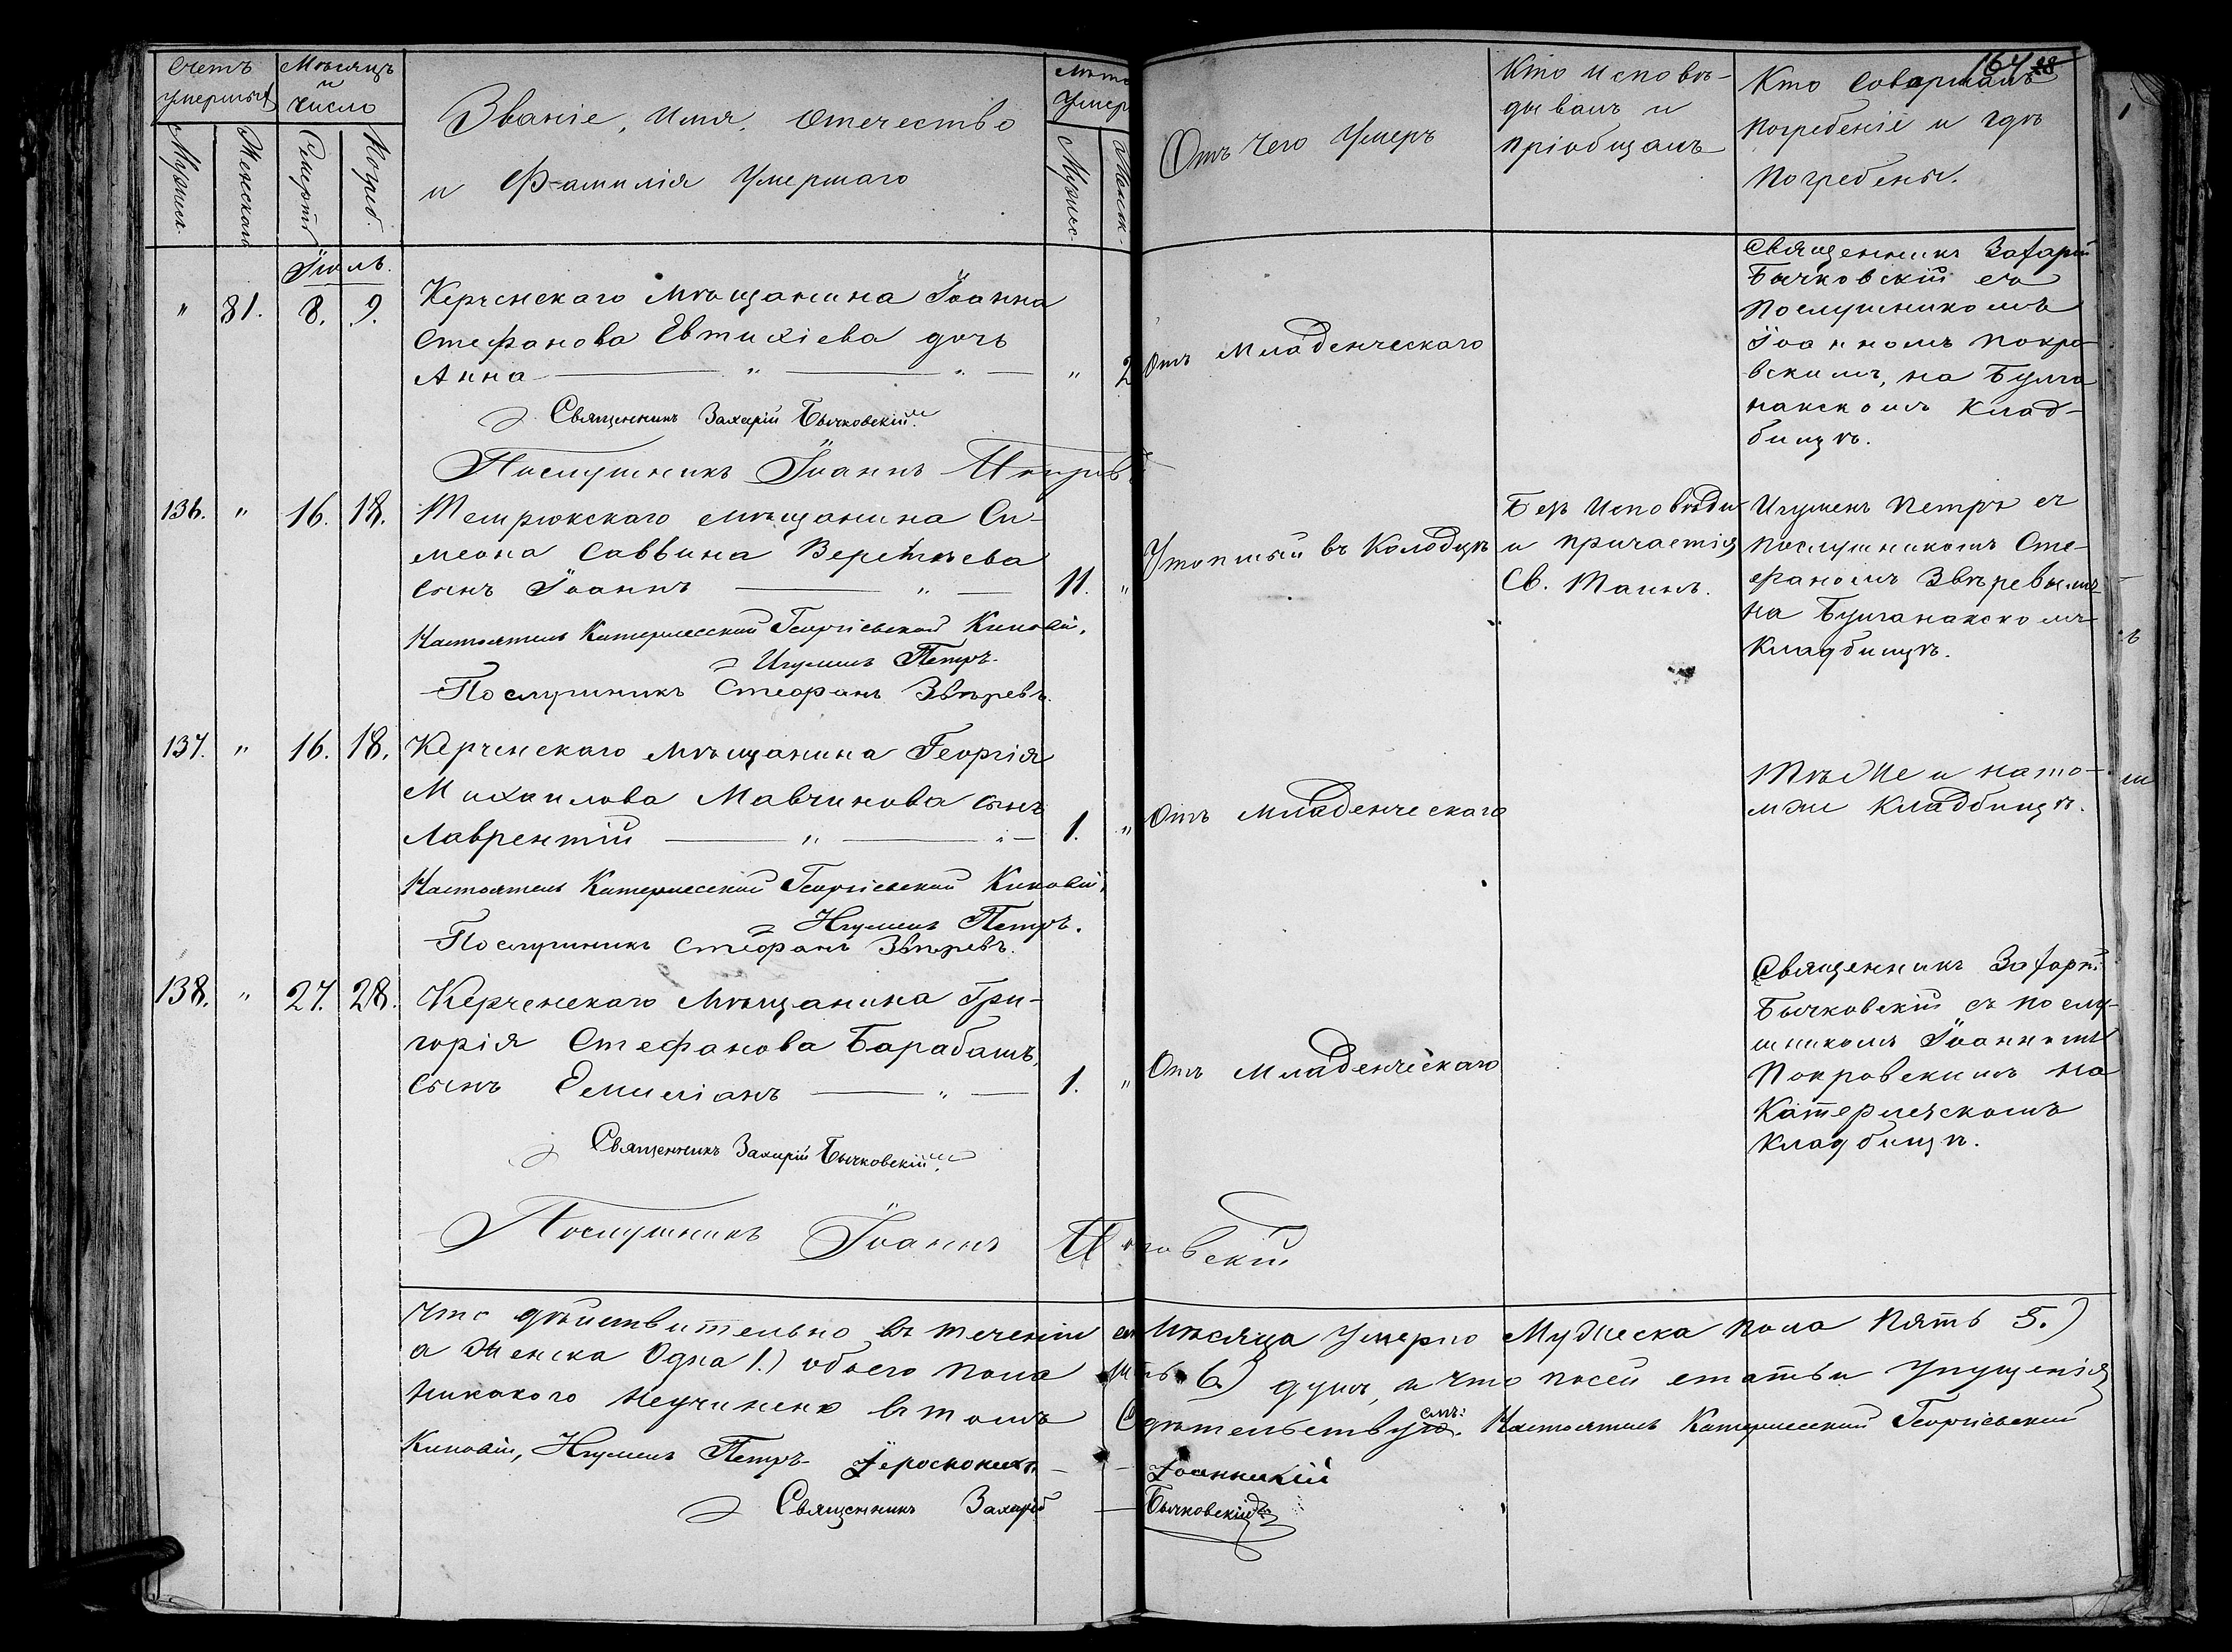 Счетъ умершихъ
Мѣсяцъ и число
Званіе, Имя, Отечество
и Фамилія Умершаго
Лѣта Умер
Мужеск.
Женскаго
Смерти
Погреб.
Мужес-
Женск-
Отъ Чего Умеръ
Кто Исповѣ-
дывалъ и
пріобщалъ
164
Кто Совершалъ
погребеніе и гдѣ
Погребены.
Іюль.
" 81. 8. 9.
Керченскаго Мѣщанина Іоанна
Стефанова Евтихіева дочь
Анна " " " 2
Отъ Младенческаго
Священникъ Захарій
Бычковскій съ
Послушникомъ
Іоанномъ Покро-
вскимъ, на Булга
накскомъ Клад-
бищѣ.
Священникъ Захарій Бычковскій
Послушникъ Іоаннъ
136. " 16. 18.
Темрюкскаго мѣщанина Си-
меона Саввина Веретѣева
сынъ Іоаннъ " 11. "
Утопшый въ Колодцѣ
Безъ Исповѣди
и причастія
Св. Таинъ.
Игуменъ Петръ съ
послушникомъ Сте-
фаномъ Звѣревымъ
на Булганакскомъ
Кладбищѣ.
Настоятель Катерлесской Георгіевской Киновіи,
Игуменъ Петръ.
Послушникъ Стефанъ Звѣревъ.
137. " 16. 18.
Керченскаго Мѣщанина Георгія
Михаилова Мавчинова сынъ
Лаврентій " " 1. "
Отъ Младенческаго
Тѣ же и на то-
мже Кладбищѣ.
Настоятель Катерлесской Георгіевской Киновіи,
Игуменъ Петръ.
Послушникъ Стефанъ Звѣревъ.
138. " 27. 28.
Керченскаго Мѣщанина Гри-
горія Стефанова Барабашъ,
сынъ Емиліанъ " 1. "
Отъ Младенческаго
Священникъ Захарій
Бычковскій съ послу-
шникомъ Іоанномъ
Покровскимъ на
Катерлезскомъ
Кладбищѣ.
Священникъ Захарій Бычковскій
Послушникъ Іоаннъ Покровскій
Что дѣйствительно въ теченіи сего Мѣсяца Умерло Мужеска пола пять 5.)
а Женска Одна 1.) обоего пола шесть 6.) душъ, и что посей статьи Упущенія
никакого неучинено въ томъ Свидѣтельствуемъ: Настоятель Катерлесской Георгіевской
Киновіи, Игуменъ Петръ Іеромонахъ Іоанникій
Священникъ Захарій Бычковскій